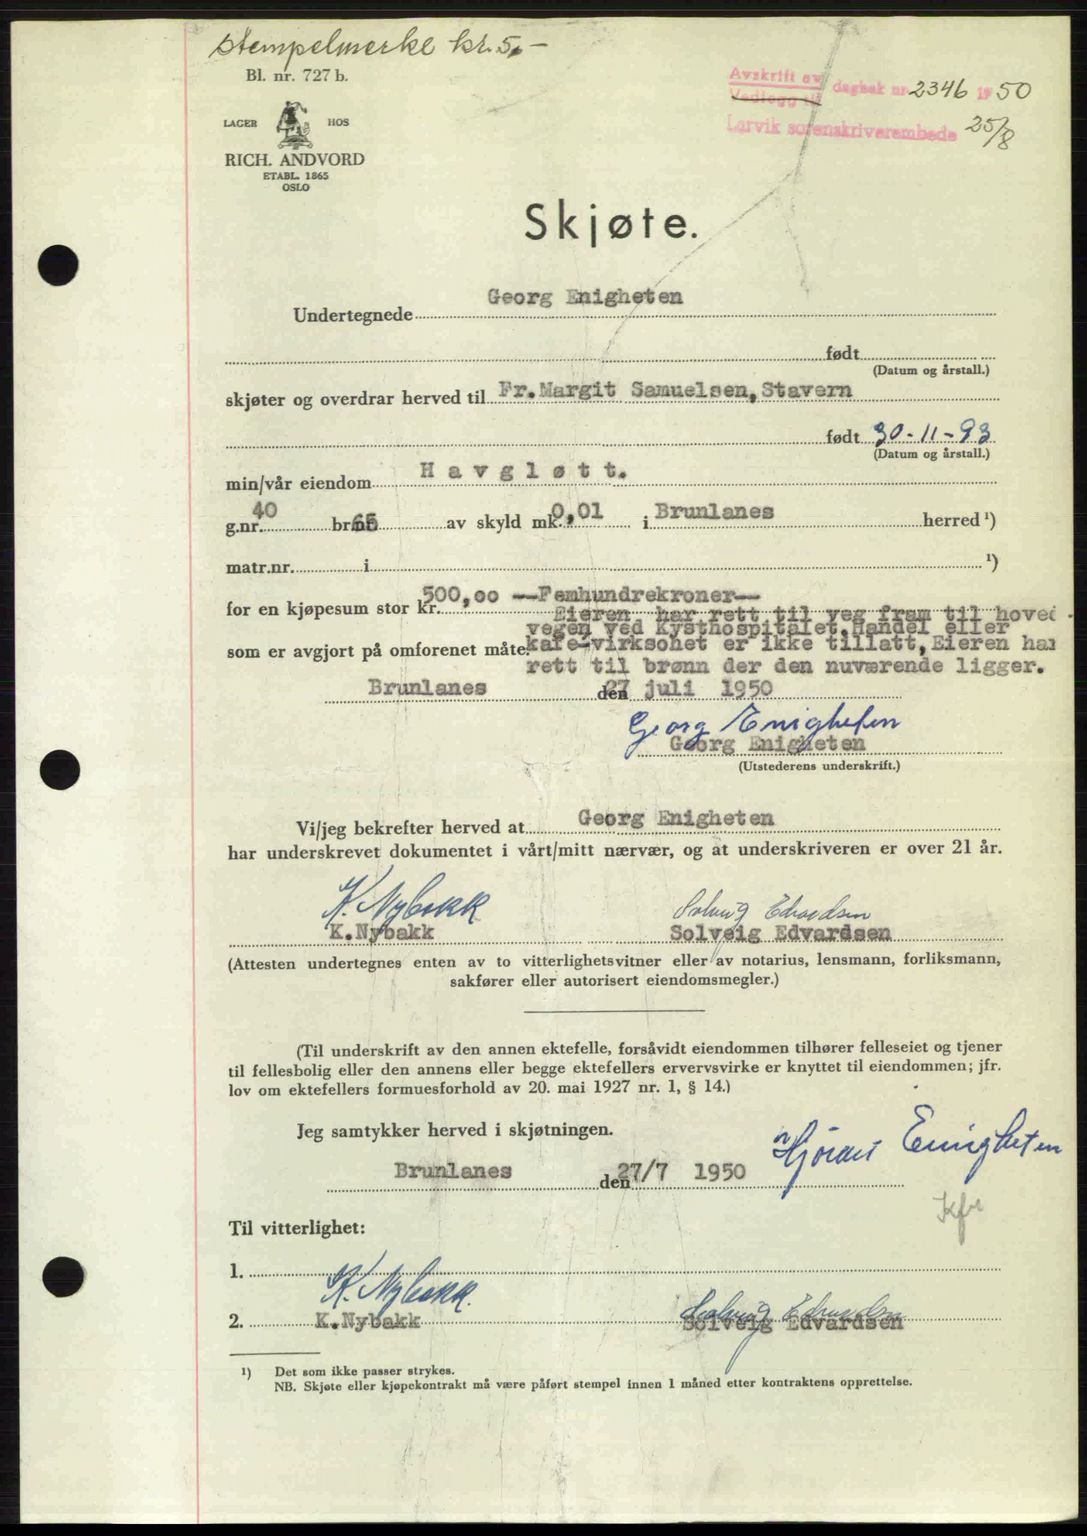 Stempelmerke kr. 5,-
Bl. nr. 727 b.
Avskrift av
Vedlegg til dagbok nr 2346 1950
Larvik sorenskriverembede 25/8
LAGER HOS
RICH. ANDVORD
ETABL. 1865
OSLO
Skjøte.
Undertegnede Georg Enigheten
født
(Datum og årstall.)
skjøter og overdrar herved til Fr. Margit Samuelsen, Stavern
født 30-11-93
(Datum og årstall.)
min/vår eiendom Havgløtt.
g.nr. 40 br.nr. 65 av skyld mk. 0,01 i Brunlanes herred ¹)
matr.nr. i ¹)
for en kjøpesum stor kr. 500,00 --Femhundrekroner--
Eieren har rett til veg fram til hoved-
vegen ved Kysthospitalet. Handel eller
som er avgjort på omforenet måte. kafe-virksohet er ikke tillatt, Eieren har
rett til brønn der den nuværende ligger.
Brunlanes den 27 juli 1950
Georg Enigheten
Georg Enigheten
(Utstederens underskrift.)
Vi/jeg bekrefter herved at Georg Enigheten
har underskrevet dokumentet i vårt/mitt nærvær, og at underskriveren er over 21 år.
K. Nybakk Solveig Edvardsen
K.Nybakk Solveig Edvardsen
(Attesten undertegnes enten av to vitterlighetsvitner eller av notarius, lensmann, forliksmann,
sakfører eller autorisert eiendomsmegler.)
(Til underskrift av den annen ektefelle, forsåvidt eiendommen tilhører felleseiet og tjener
til fellesbolig eller den annens eller begge ektefellers ervervsvirke er knyttet til eiendommen; jfr.
lov om ektefellers formuesforhold av 20. mai 1927 nr. 1, § 14.)
Jeg samtykker herved i skjøtningen.
Enigheten
Brunlanes den 27/7 1950
Til vitterlighet:
1.
K. Nybakk. Solveig Edvardsen
2. K.Nybakk Solveig Edvardsen
¹) Det som ikke passer strykes.
NB. Skjøte eller kjøpekontrakt må være påført stempel innen 1 måned etter kontraktens opprettelse.